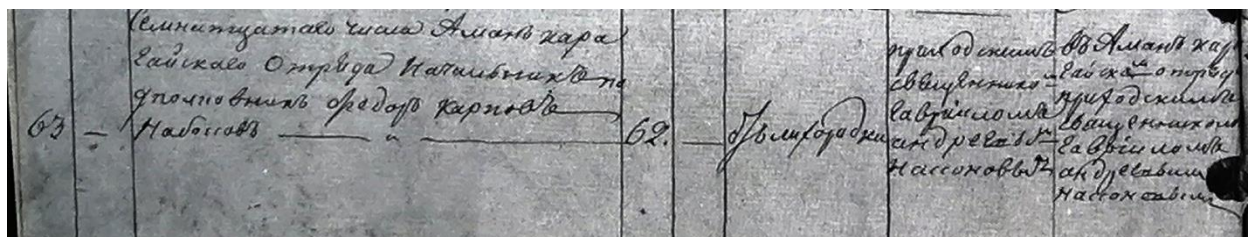 Семнатцатаго числа Аманъ кара
гайскаго Отряда Начальникъ по
дполковникъ Федоръ Карповъ
63 — Набоковъ — „ — 62. — отъ лихорадки
приходскимъ
священнико-
Гавриломъ
андреевы-
Насоновымъ
въ Аманъ кар
гайской отряд
приходскимъ
священником
Гавриломъ
андреевым
насоновым